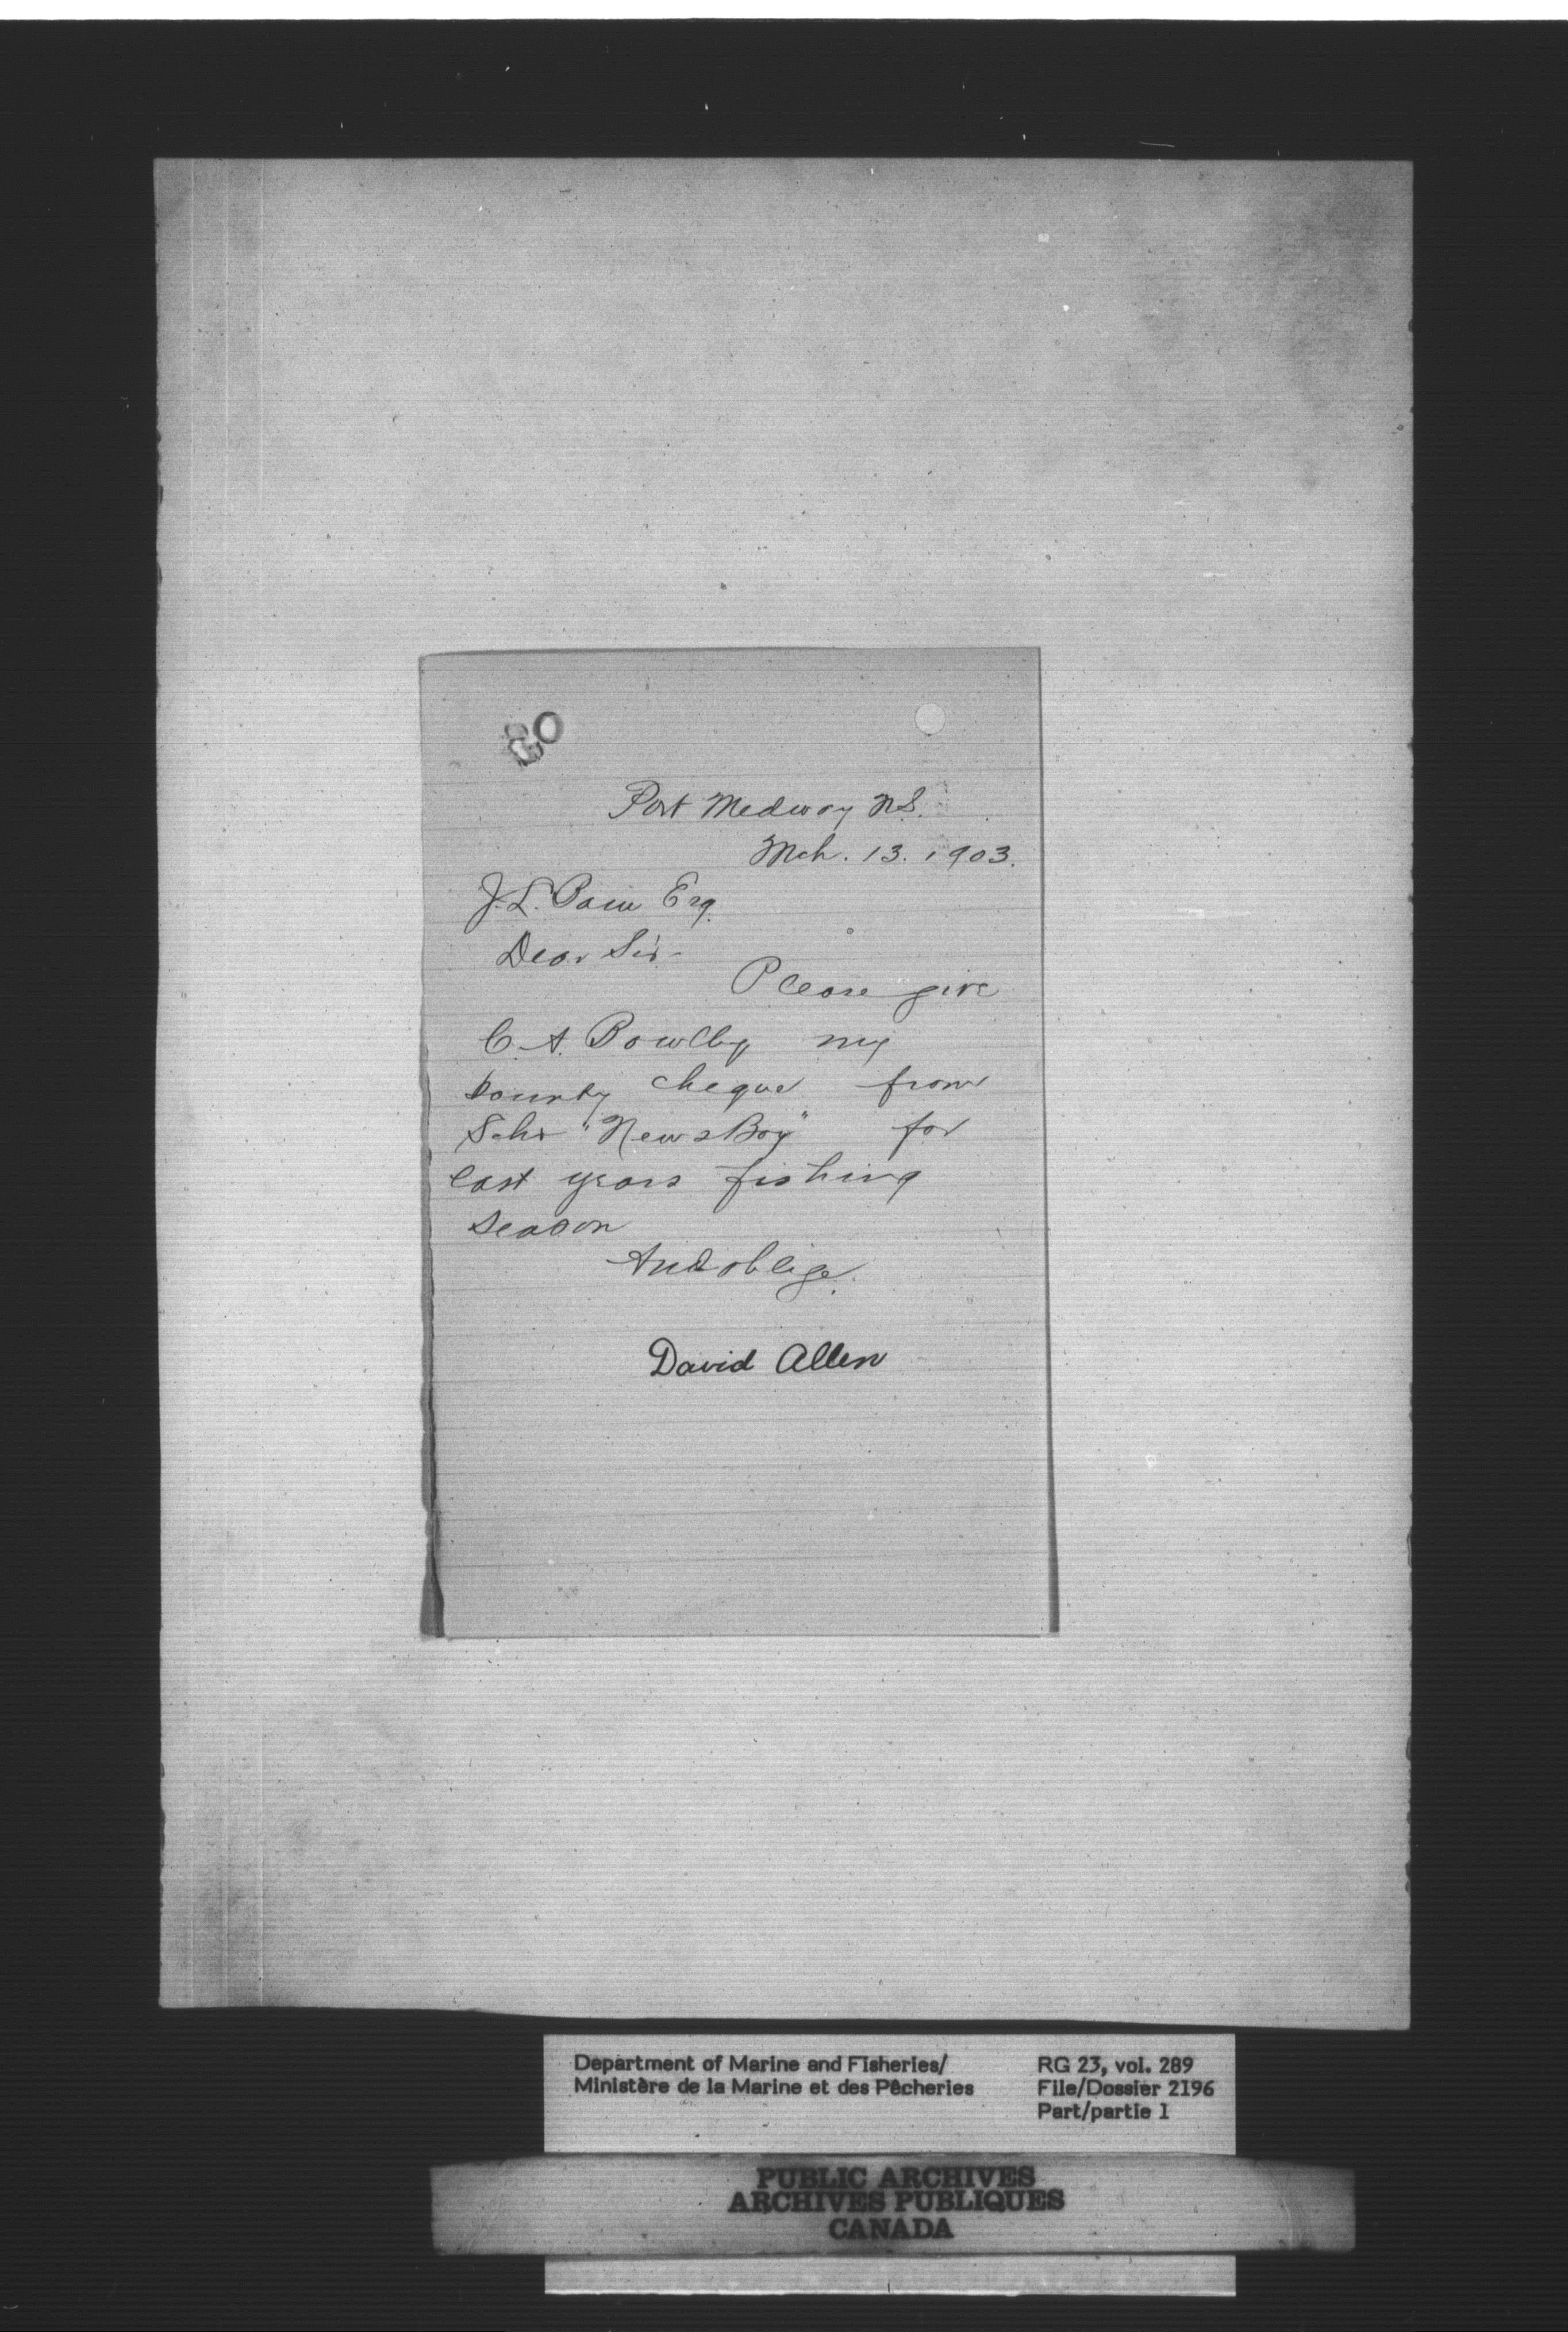 80
Port Medway N.S.
Mch. 13. 1903.
J.L. Esq.
Dear Sir -
Please give
C. A. Bowlby my
bounty cheque from
Schr "NewsBoy" for
last years fishing
season
And oblige.
David Allen
Department of Marine and Fisheries/ RG 23, vol. 289
Ministère de la Marine et des Pêcheries File/Dossier 2196
Part/partie 1
PUBLIC ARCHIVES
ARCHIVES PUBLIQUES
CANADA